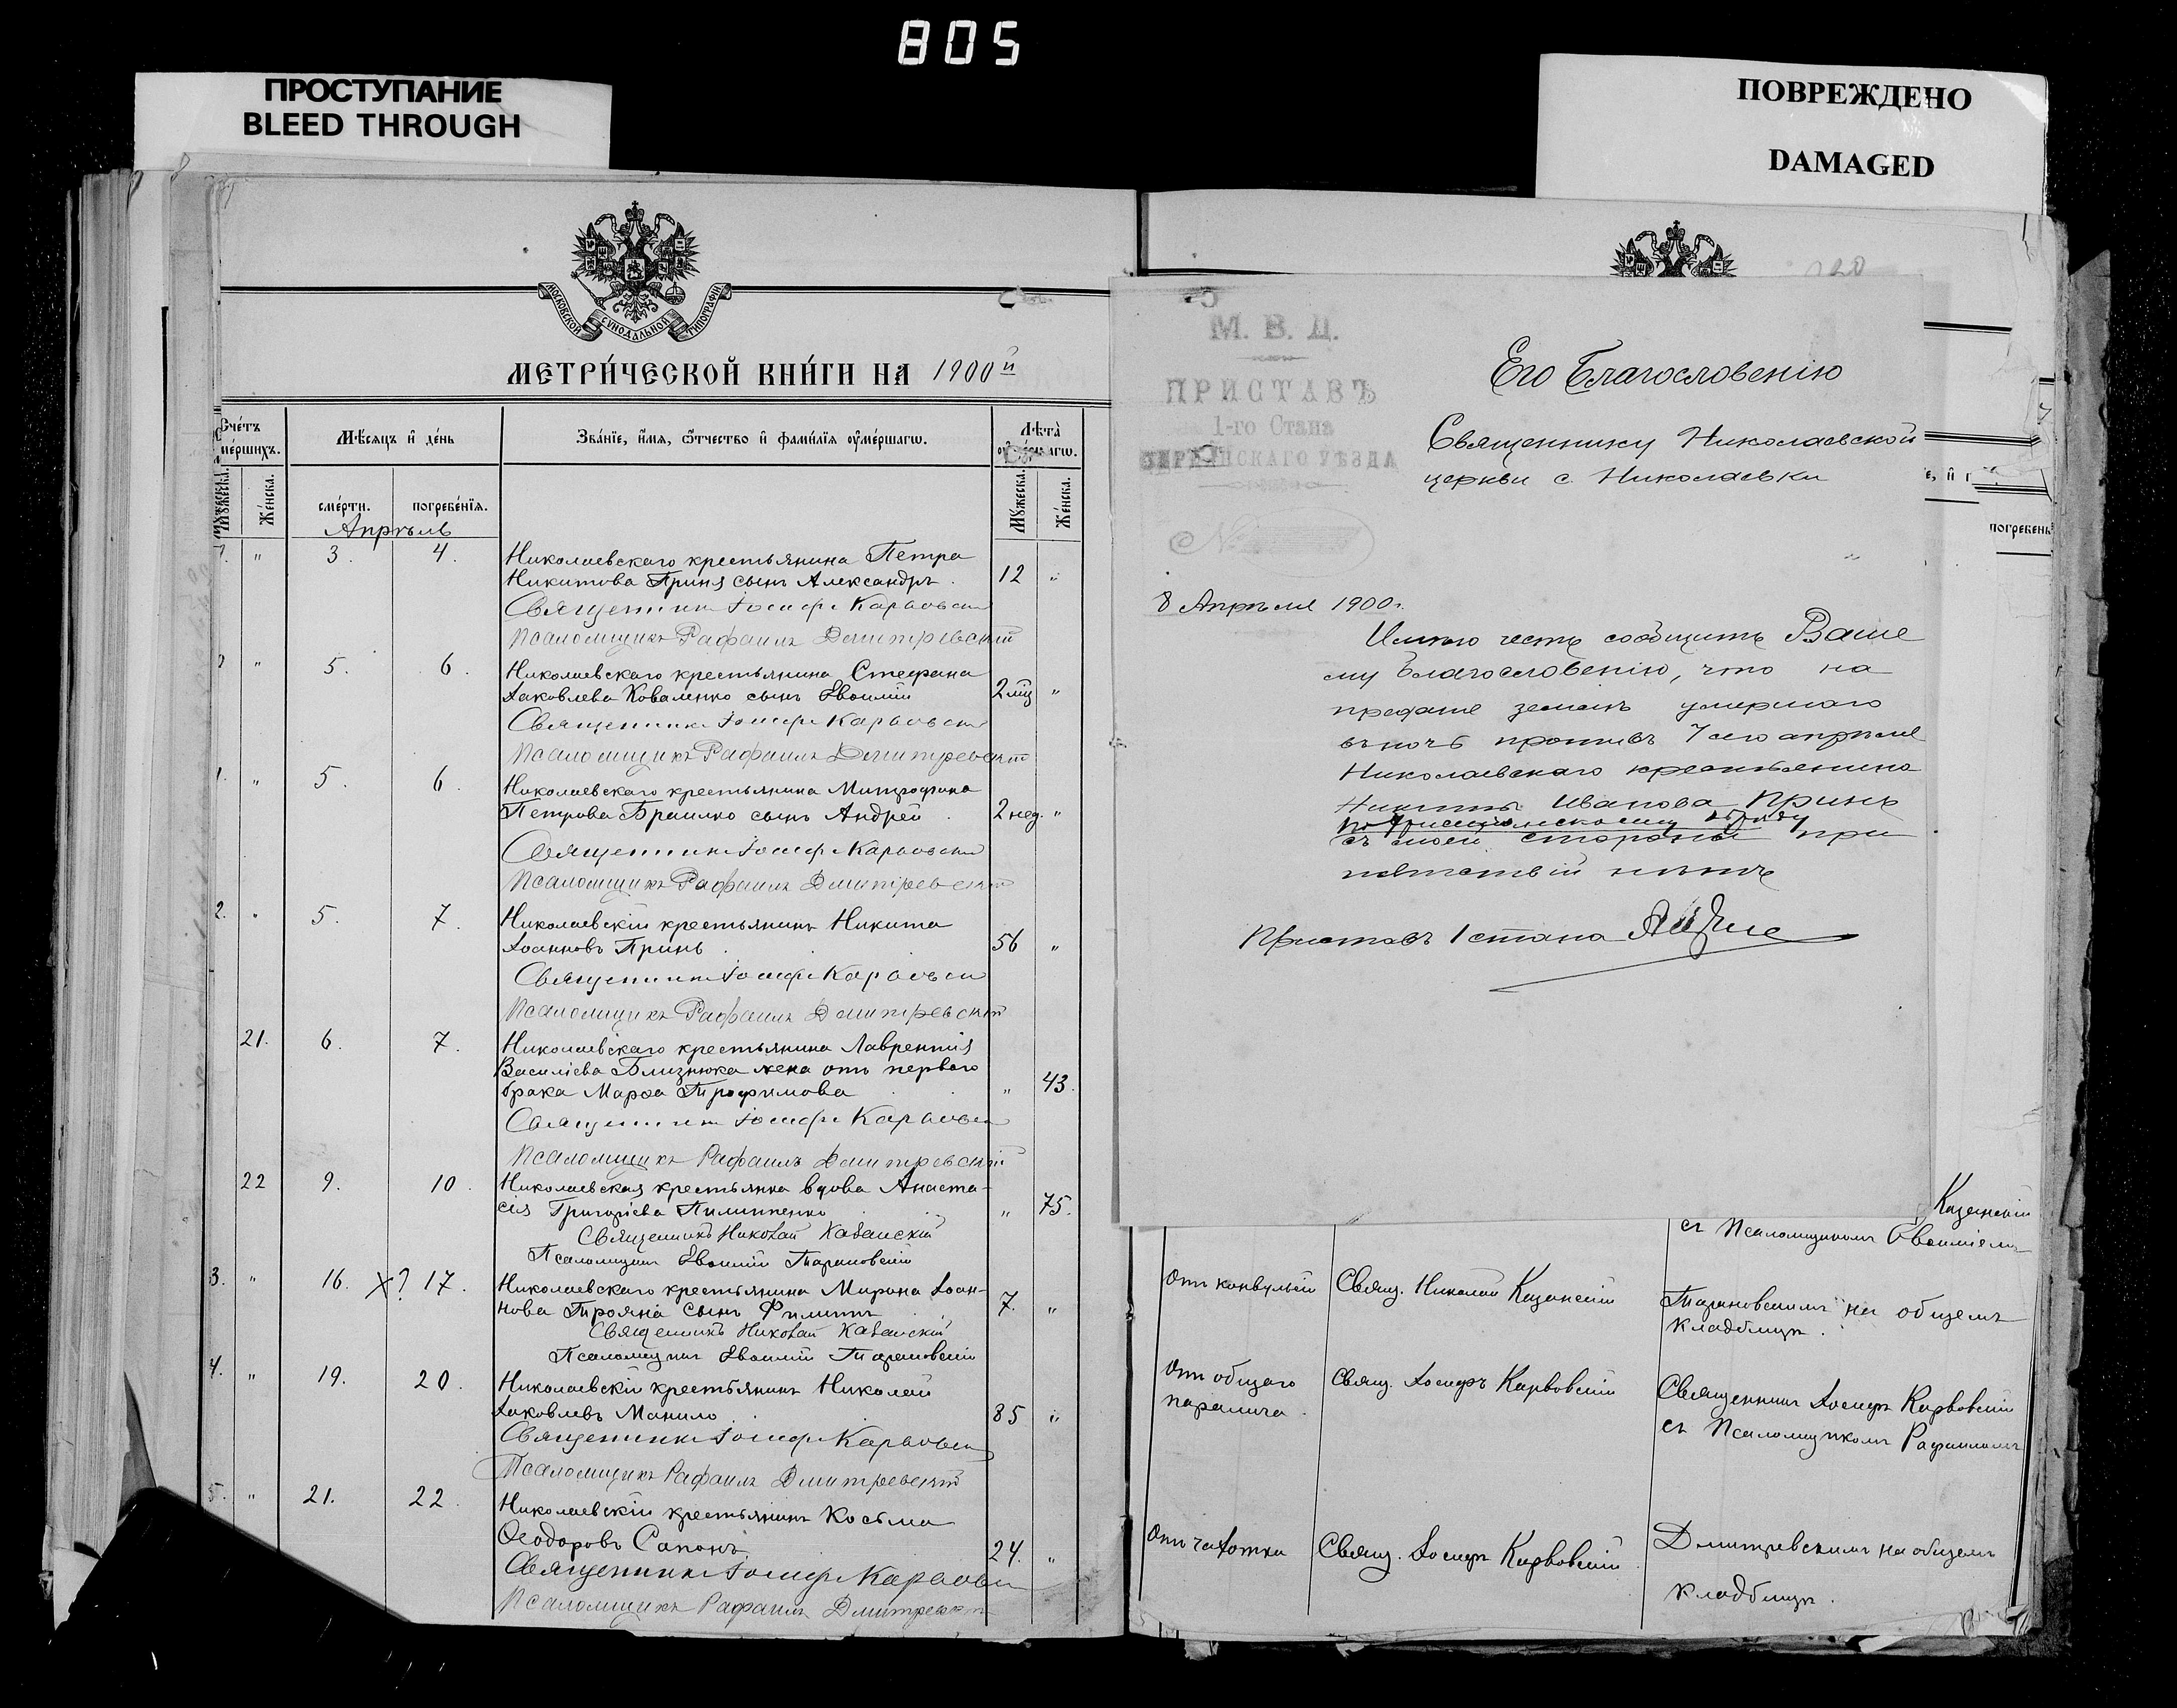 805
ПРОСТУПАНИЕ
BLEED THROUGH
ПОВРЕЖДЕНО
DAMAGED
МОСКОВСКОЙ СѴНОДАЛЬНОЙ ТИПОГРАФІИ
МЕТРИ́ЧЕСКОЙ КНИ́ГИ НА 1900й
Счéтъ
мéршихъ.
Мѣ́сяцъ и дéнь
Звáнїе, и́мя, ѻ҆́тчество и҆ фами́лїя ᲂу҆мéршагѡ.
Лѣ́та
ᲂу҆мéршагѡ.
Мꙋ́жеска.
Жéнска.
смéрти.
погребéнїя.
Мꙋ́жеска.
Жéнска.
Апрѣль
" 3. 4. Николаевскаго крестьянина Петра
Никитова Приня сынъ Александръ. 12 "
Священникъ Іосифъ Карвовскій
Псаломщикъ Рафаилъ Дмитревскій
" 5. 6. Николаевскаго крестьянина Стефана
Іаковлева Коваленко сынъ Евѳимій 2 мѣц "
Священникъ Іосифъ Карвовскій
Псаломщикъ Рафаилъ Дмитревскій
1. " 5. 6. Николаевскаго крестьянина Митрофана
Петрова Браилко сынъ Андрей. 2 нед. "
Священникъ Іосифъ Карвовскій
Псаломщикъ Рафаилъ Дмитревскій
2. " 5. 7. Николаевскій крестьянинъ Никита
Іоанновъ Принь. 56 "
Священникъ Іосифъ Карвовскій
Псаломщикъ Рафаилъ Дмитревскій
21. 6. 7. Николаевскаго крестьянина Лаврентія
Василіева Близнюка жена отъ перваго
брака Марѳа Трофимова " 43.
Священникъ Іосифъ Карвовскій
Псаломщикъ Рафаилъ Дмитревскій
22 9. 10. Николаевская крестьянка вдова Анаста-
сія Григоріева Пилипенко " 75.
Священникъ Николай Казанскій
Псаломщикъ Евѳимій Тарановскій
3. " 16. X? 17. Николаевскаго крестьянина Мирона Іоан-
нова Трояна сынъ Филиппъ 7. "
Священникъ Николай Казанскій
Псаломщикъ Евѳимій Тарановскій
4. " 19. 20. Николаевскій крестьянинъ Николай
Іаковлевъ Манило. 85 "
Священникъ Іосифъ Карвовскій
Псаломщикъ Рафаилъ Дмитревскій
5. " 21. 22. Николаевскій крестьянинъ Косьма
Ѳеодоровъ Сапонъ. 24. "
Священникъ Іосифъ Карвовскій
Псаломщикъ Рафаилъ Дмитревскій
М. В. Д.
ПРИСТАВЪ
1-го Стана
УѢЗДА
№
Его Благословенію
Священнику Николаевской
церкви с. Николаевки
8 Апрѣля 1900 г.
Имѣю честь сообщить Ваше
му Благословенію, что на
преданіе землѣ умершаго
въ ночь противъ 7 сего апрѣля
Николаевскаго крестьянина
Никиты Иванова Принь
по христіанскому обряду
съ моей стороны пре
пятствій нѣтъ
Приставъ 1 стана
погребенъ
Казанскій
съ Псаломщикомъ Евѳиміемъ
Отъ конвульсій Свящ. Николай Казанскій Тарановскимъ на общемъ
кладбищѣ.
Отъ общаго
паралича. Свящ. Іосифъ Карвовскій Священникъ Іосифъ Карвовскій
съ Псаломщикомъ Рафаиломъ
Отъ чахотки Свящ. Іосифъ Карвовскій. Дмитревскимъ на общемъ
кладбищѣ.